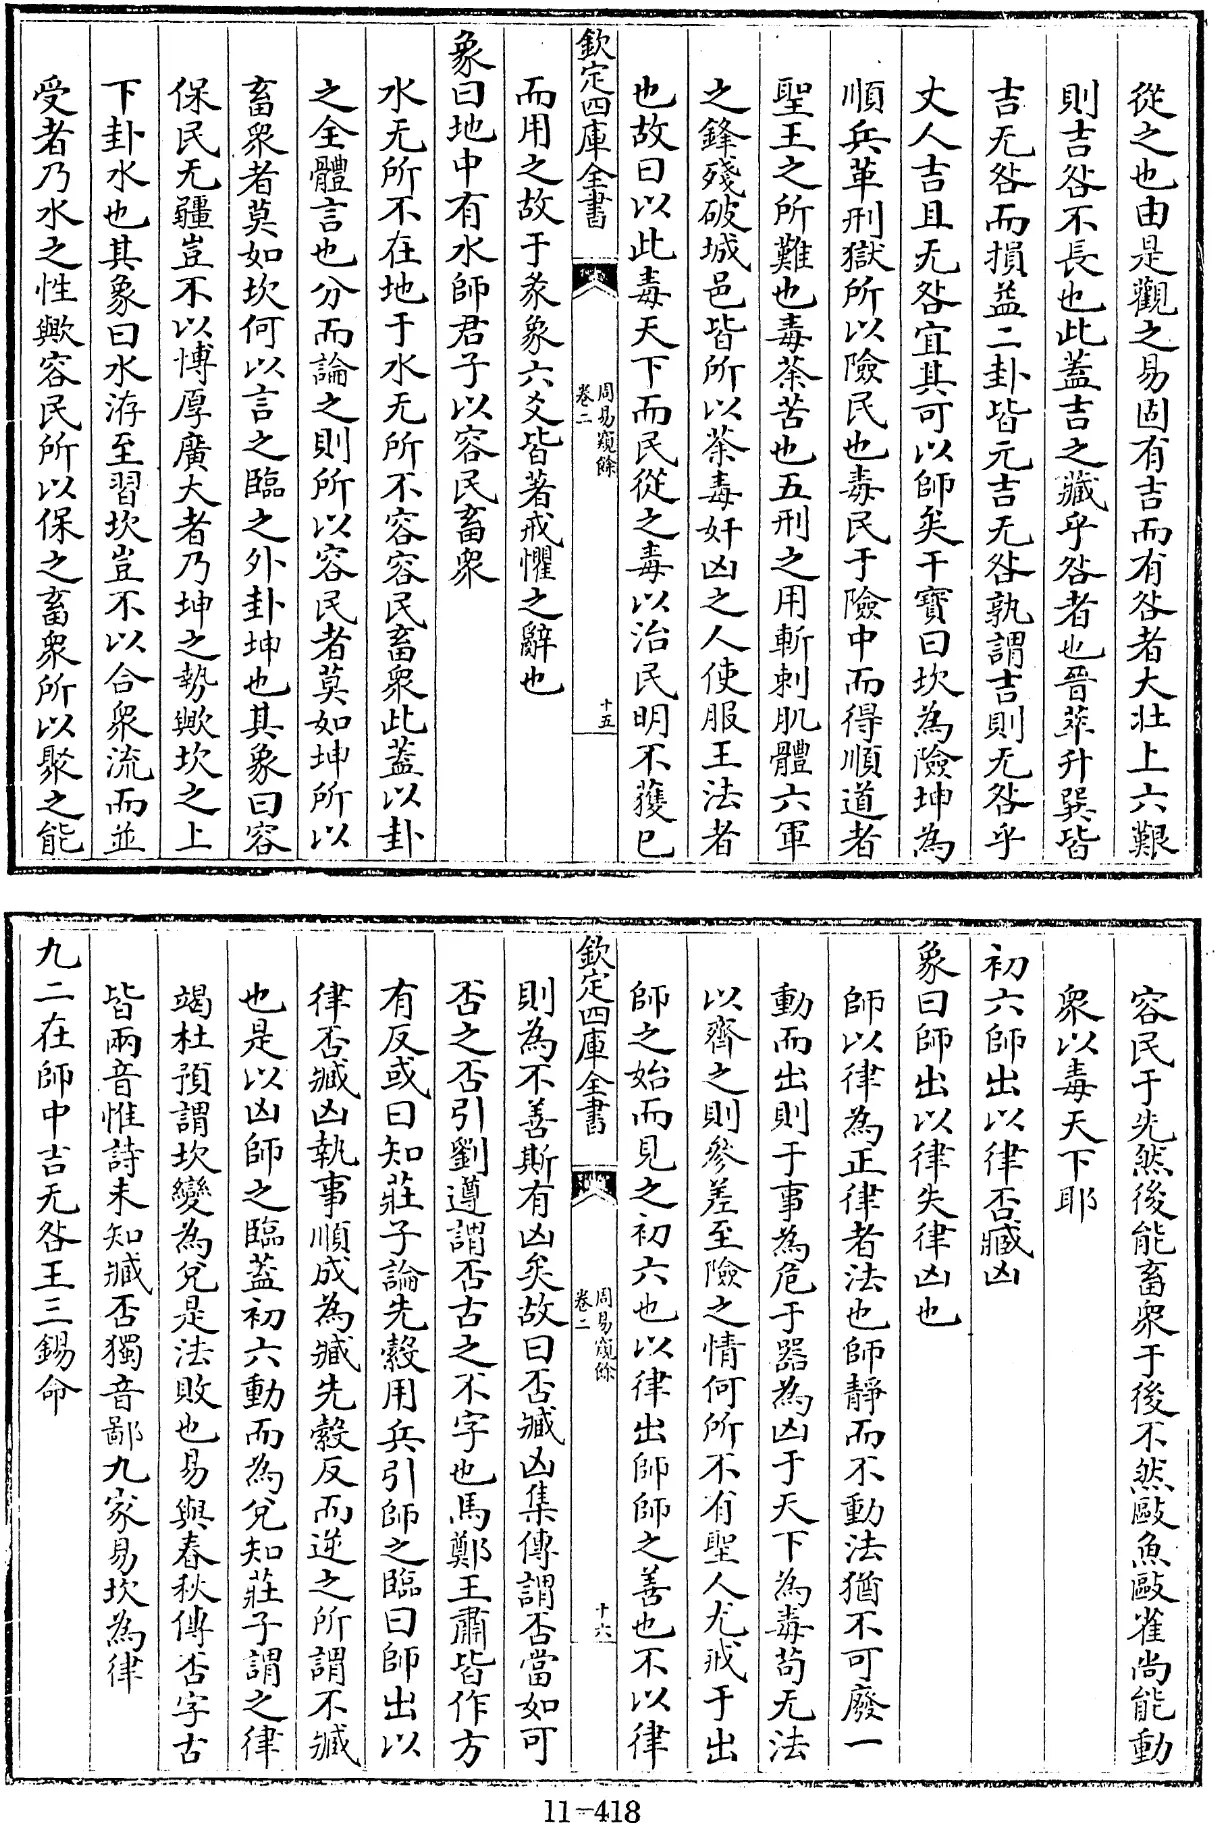 從之也由是觀之易固有吉而有咎者大壯上六艱
則吉咎不長也此蓋吉之藏乎咎者也晉萃升巽皆
吉无咎而損益二卦皆元吉无咎孰謂吉則无咎乎
丈人吉且无咎宜其可以師矣干寶曰坎為險坤為
順兵革刑獄所以險民也毒民于險中而得順道者
聖王之所難也毒荼苦也五刑之用斬刺肌體六軍
之鋒殘破城邑皆所以荼毒奸凶之人使服王法者
也故曰以此毒天下而民從之毒以治民明不獲已
欽定四庫全書
周易窺餘
卷二
十五
而用之故于彖象六爻皆著戒懼之辭也
象曰地中有水師君子以容民畜衆
水无所不在地于水无所不容容民畜衆此蓋以卦
之全體言也分而論之則所以容民者莫如坤所以
畜衆者莫如坎何以言之臨之外卦坤也其象曰容
保民无疆豈不以博厚廣大者乃坤之勢歟坎之上
下卦水也其象曰水洊至習坎豈不以合衆流而並
受者乃水之性歟容民所以保之畜衆所以聚之能
容民于先然後能畜衆于後不然敺魚敺雀尚能動
衆以毒天下耶
初六師出以律否臧凶
象曰師出以律失律凶也
師以律為正律者法也師靜而不動法猶不可廢一
動而出則于事為危于器為凶于天下為毒苟无法
以齊之則參差至險之情何所不有聖人尤戒于出
師之始而見之初六也以律出師師之善也不以律
欽定四庫全書
周易窺餘
卷二
十六
則為不善斯有凶矣故曰否臧凶集傳謂否當如可
否之否引劉遵謂否古之不字也馬鄭王肅皆作方
有反或曰知莊子論先縠用兵引師之臨曰師出以
律否臧凶執事順成為臧先縠反而逆之所謂不臧
也是以凶師之臨蓋初六動而為兌知莊子謂之律
竭杜預謂坎變為兌是法敗也易與春秋傳否字古
皆兩音惟詩未知臧否獨音鄙九家易坎為律
九二在師中吉无咎王三錫命
11-418